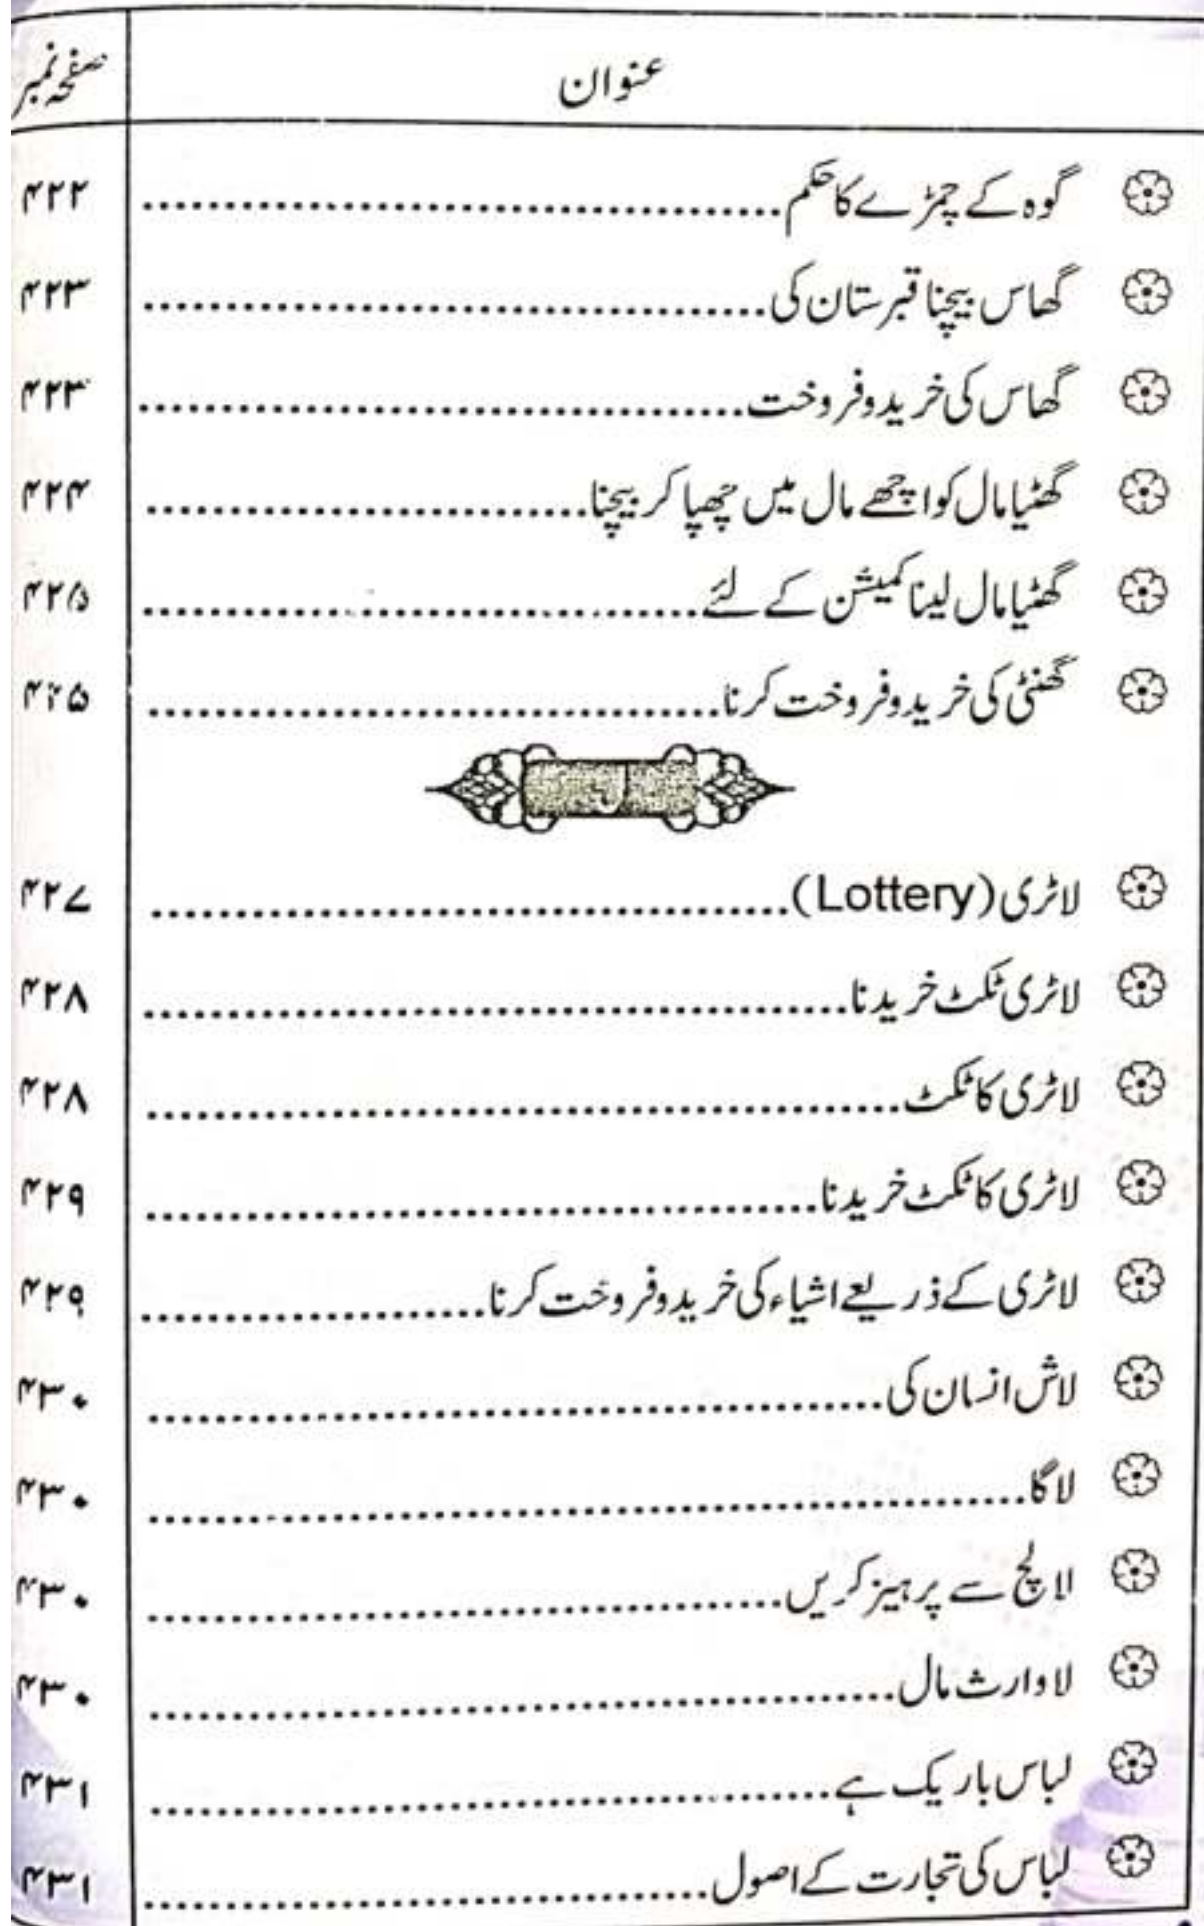 عنوان صفحہ نمبر
گوہ کے چمڑے کا حکم ........ ۴۲۲
گھاس بیچنا قبرستان کی ........ ۴۲۳
گھاس کی خرید و فروخت ........ ۴۲۳
گھٹیا مال کو اچھے مال میں چُھپا کر بیچنا ........ ۴۲۴
گھٹیا مال لینا کمیشن کے لئے ........ ۴۲۵
گھنٹی کی خرید و فروخت کرنا ........ ۴۲۵
ل
لاٹری (Lottery) ........ ۴۲۷
لاٹری ٹکٹ خریدنا ........ ۴۲۸
لاٹری کا ٹکٹ ........ ۴۲۸
لاٹری کا ٹکٹ خریدنا ........ ۴۲۹
لاٹری کے ذریعے اشیاء کی خرید و فروخت کرنا ........ ۴۲۹
لاش انسان کی ........ ۴۳۰
لاگا ........ ۴۳۰
لالچ سے پرہیز کریں ........ ۴۳۰
لاوارث مال ........ ۴۳۰
لباس باریک ہے ........ ۴۳۱
لباس کی تجارت کے اصول ........ ۴۳۱